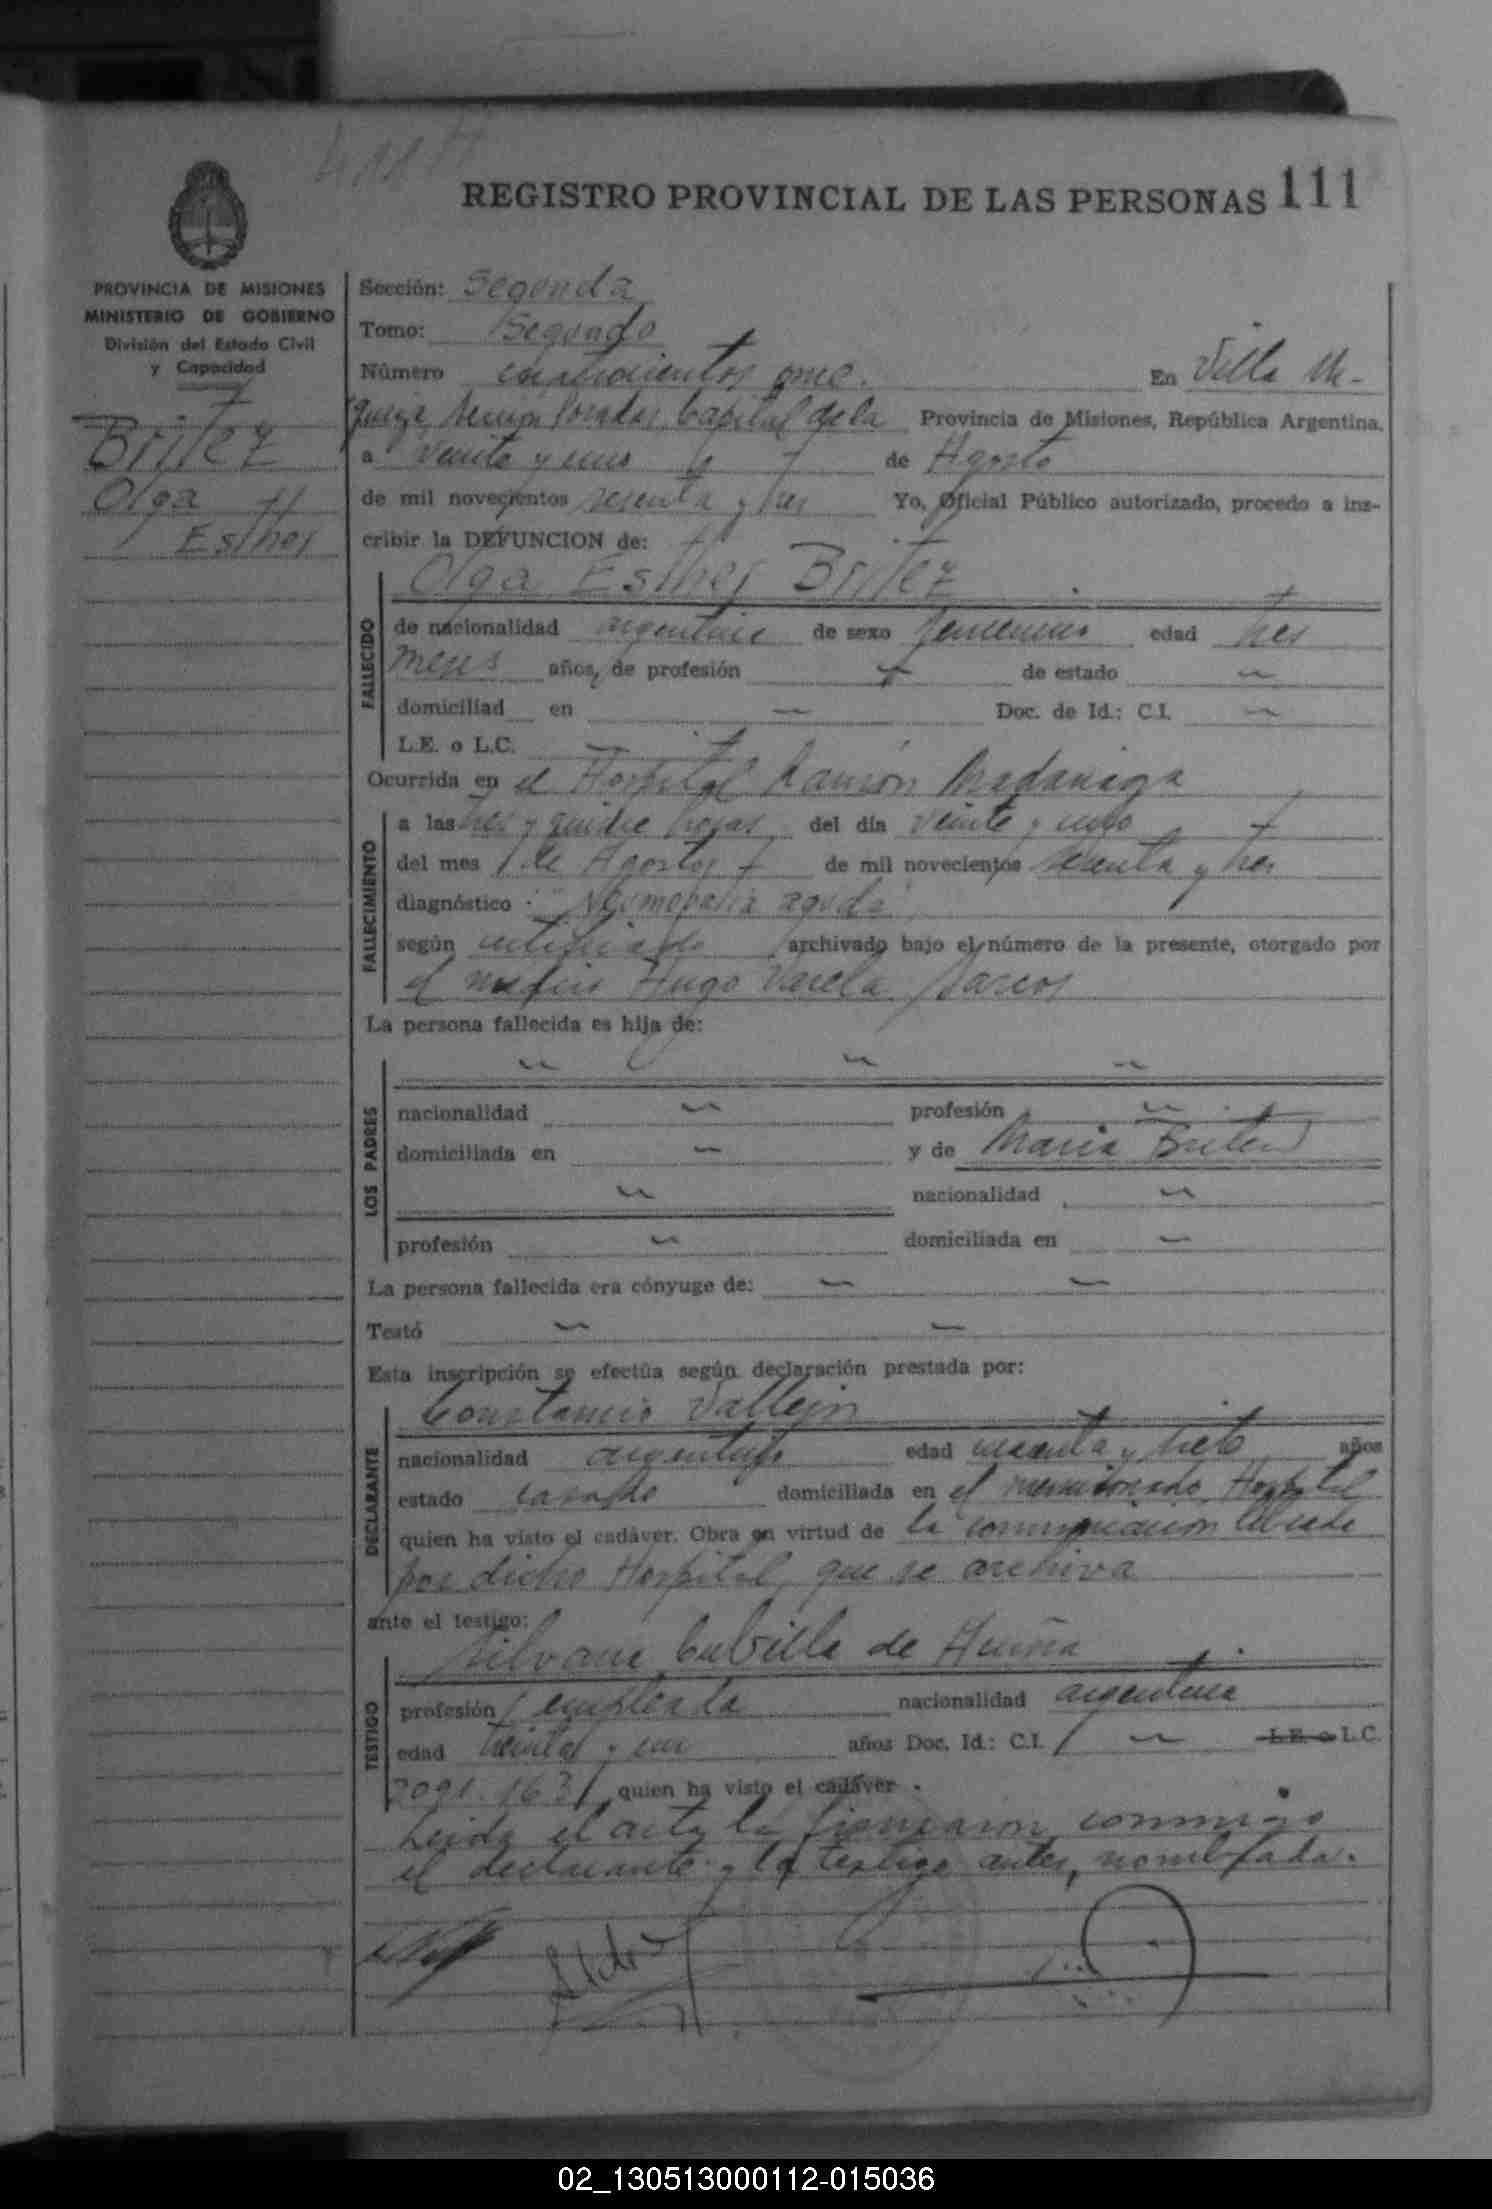 REGISTRO PROVINCIAL DE LAS PERSONAS 111
PROVINCIA DE MISIONES
MINISTERIO DE GOBIERNO
División del Estado Civil
y Capacidad
Britez
Olga
Esther
Sección: Segunda
Tomo: Segundo
Número cuatrocientos once. En Villa
Posadas Capital de la Provincia de Misiones, República Argentina,
a veinte y uno de Agosto
de mil novecientos sesenta y tres Yo, Oficial Público autorizado, procedo a ins-
cribir la DEFUNCION de:
Olga Esther Britez
FALLECIDO
de nacionalidad argentina de sexo femenino edad tres
meses años, de profesión de estado
domiciliad en Doc. de Id.: C.I.
L.E. o L.C.
Ocurrida en el Hospital Ramón Madariaga
FALLECIMIENTO
a las tres y quince horas del día veinte y uno
del mes de Agosto de mil novecientos sesenta y tres
diagnóstico: Neumopatía aguda
según certificado archivado bajo el número de la presente, otorgado por
el médico Hugo Varela
La persona fallecida es hija de:
LOS PADRES
nacionalidad profesión
domiciliada en y de Maria Britez
nacionalidad
profesión domiciliada en
La persona fallecida era cónyuge de:
Testó
Esta inscripción se efectúa según declaración prestada por:
DECLARANTE
Constancio Vallejos
nacionalidad argentino edad cuarenta y siete años
estado casado domiciliada en el mencionado Hospital
quien ha visto el cadáver. Obra en virtud de la comunicación librada
por dicho Hospital, que se archiva
ante el testigo:
TESTIGO
Silvana Cubilla de
profesión empleada nacionalidad argentina
edad treinta y un años Doc. Id.: C.I. L.E. o L.C.
2091.163 quien ha visto el cadáver.
Leída el acta la firmaron conmigo
el declarante y la testigo antes nombrada.
02_130513000112-015036